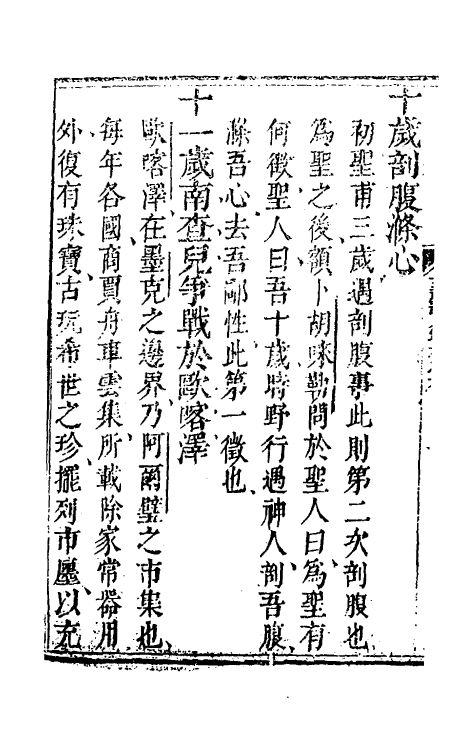 十歲剖腹滌心
初聖甫三歲遇剖腹事此則第二次剖腹也
為聖之後額卜胡唻勒問於聖人曰為聖有
何徵聖人曰吾十歲時野行遇神人剖吾腹
滌吾心去吾鄙性此第一徵也
十一歲南查兒爭戰於歐喀澤
歐喀澤在墨克之邊界乃阿爾璧之市集也
每年各國商賈舟車雲集所載除家常器用
外復有珠寶古玩希世之珍擺列市廛以充